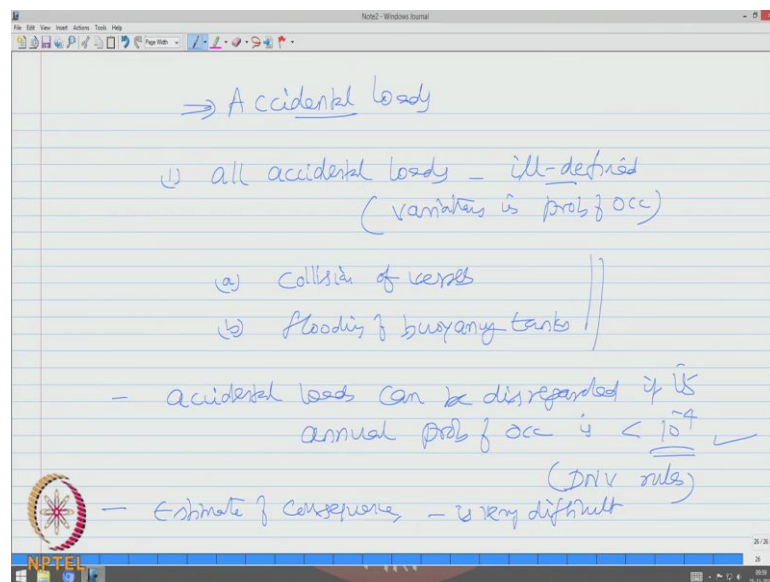 Note2 - Windows Journal
File Edit View Insert Actions Tools Help
Page Width
⇒ Accidental loads
(1) all accidental loads - ill-defined
(variations is prob of occ)
(a) Collision of vessels
(b) flooding of buoyancy tanks
- accidental loads can be disregarded if its
annual prob of occ is < 10^-4 ✓
(DNV rules)
- Estimate of consequences - is very difficult
NPTEL
26 / 26
26
09:59